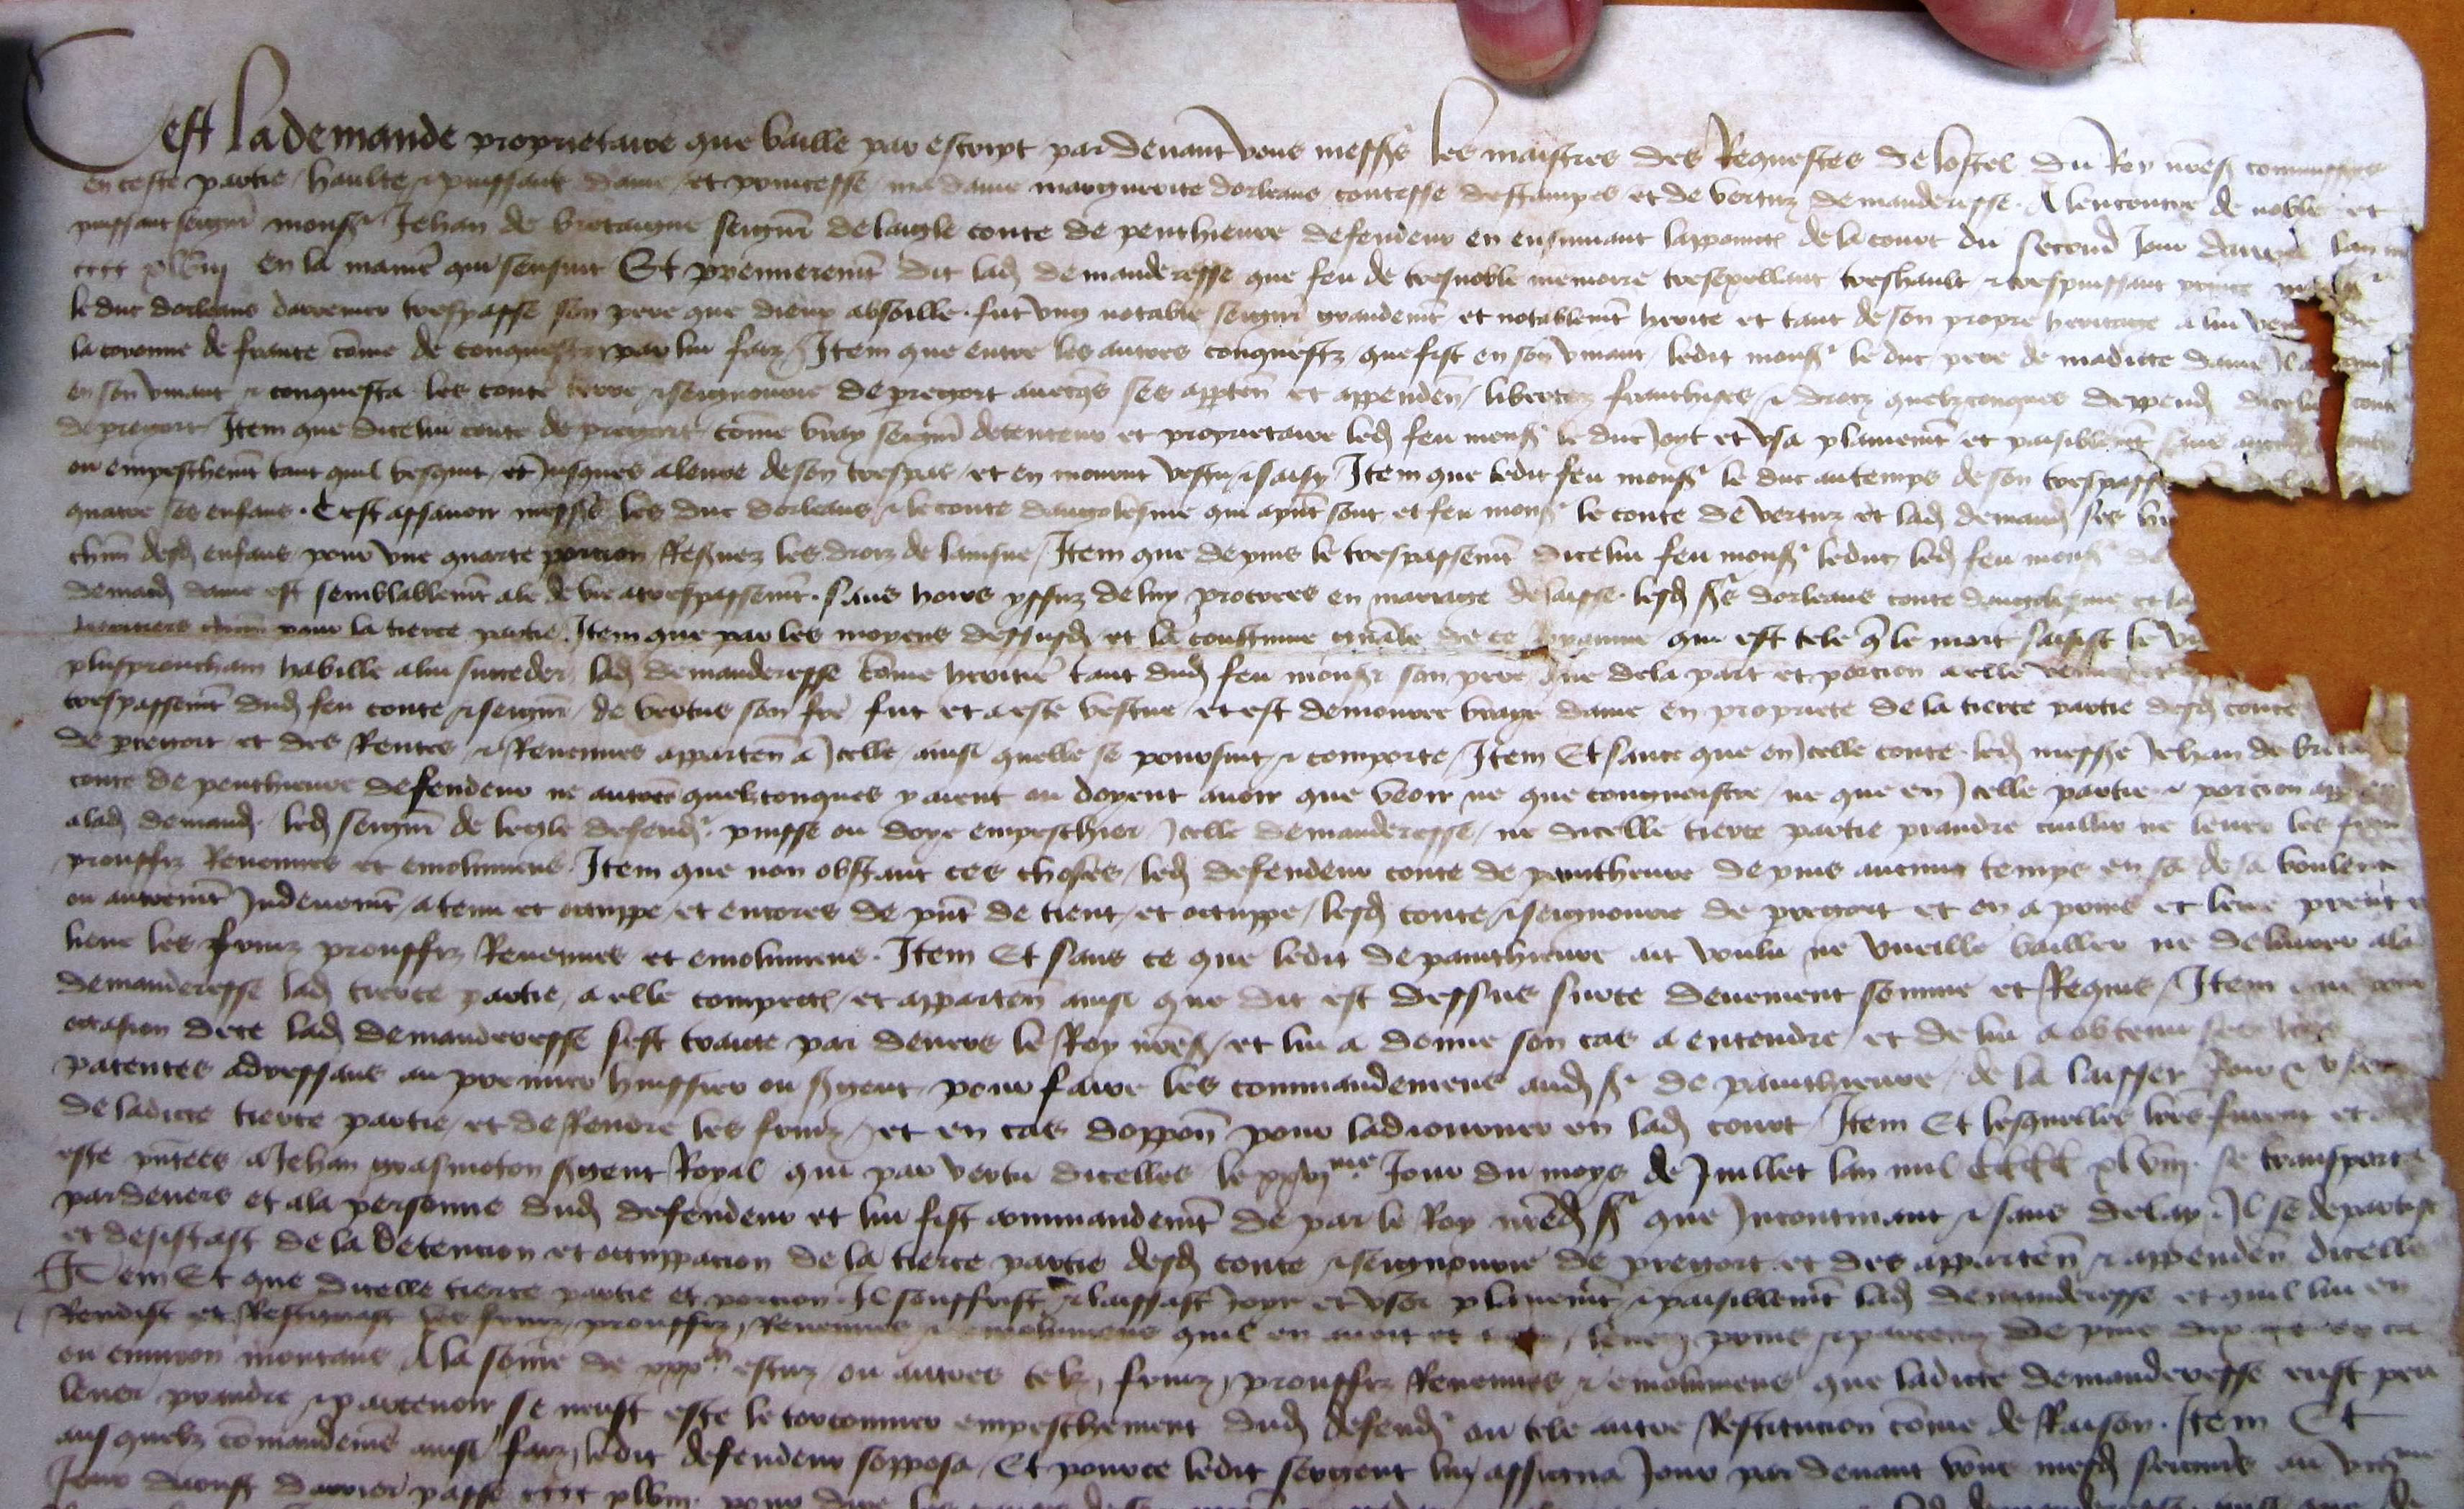 Cest la demande proprietaire que baille par escript par devant vous messrs les maistres des Requestes de lostel du Roy nres commisses
en ceste partie haulte & puissant dame et princesse ma dame marguerite dorleans contesse destampes et de vertuz demanderesse Alencontre de noble et
puissant seignr monsr Jehan de bretaigne seignr de laigle conte de penthievre defendeur en ensuivant lappoinct de la court du second jour lan mil
cccc xlviij en la maniere qui sensuit Et premierement dit lad demanderesse que feu de tresnoble memoire tresexcellant treshault & trespuissant prince
le duc dorleans darrenier trespasse son pere que dieux absoille fut ung notable seignr grandemt et notablemt herite et tant de son propre heritage a lui venu de
la coronne de france come de conquestz par lui faiz Item que entre les autres conquestz que fist en son vivant ledit monsr le duc pere de madicte dame il
en son vivant & conquesta les conte terre & seigneurie de pregort avecqs ses apparten et appenden libertez franchises & droiz quelzconques deppend dicelui conte
de pregort Item que dicelui conte de pregort come vray seignr detenteur et proprietaire led feu monsr le duc joyt et usa plainemt et paisiblemt sans
ou empeschemt tant quil vesquit et jusques a leure de son trespas et en mourut vestu & saisy Item que ledit feu monsr le duc au temps de son trespasse
quatre ses enfans Cest assavoir messrs les duc dorleans & le conte dangolesme qui apnt sont et feu monsr le conte de vertuz et lad demand ses
chun desd enfans pour une quarte porcion Reservez les droiz de lainsne Item que depuis le trespassemt dicelui feu monsr le duc led feu monsr de
demand dame est semblablemt ale de vie a trespassemt sans hoirs yssuz de luy procrees en mariage delaisse lesd srs dorleans conte dangolesme et la
heritiers chun pour la tierce partie Item que par les moyens dessusd et la coustume gnale de ce Royaume qui est tele q le mort saisist le
plus prouchain habille a lui succeder lad demanderesse come heritiere tant dud feu monsr son pere que de la part et porcion a elle
trespassemt dud feu conte & seignr de vertus son fre fut et a este vestue et est demouree vraye dame en propriete de la tierce partie desd conte
de pregort et des Rentes & Revenues apparten a icelle ainsi quelle se poursuit & comporte Item Et sans ce que en icelle conte led messre Jehan de breta
conte de penthievre defendeur ne autres quelzconques y aient ou doyent avoir que veoir ne que congnoistre ne que en icelle partie & porcion
a lad demand led seignr de legle defendr puisse ou doye empeschier icelle demanderesse ne dicelle tierce partie prandre cuillir ne lever les
prouffiz Revenues et emolumens Item que non obstant ces choses led defendeur conte de painthevre depuis aucuns temps en sa de sa voulente
ou autremt indeuemt a tenu et occuppe et encores de pnt de tient et occuppe lesd conte & seigneurie de pregort et en a prins et leve prent
lieve les fruiz prouffiz Revenues et emolumens Item Et sans ce que ledit de painthievre ait voulu ne vueille bailler ne delivrer a lad
demanderesse lad tierce partie a elle compect et apparten ainsi que dit est dessus sur ce deuement somme et Requis Item
occasion de ce lad demanderesse sest traicte par devers le Roy nres et lui a donne son cas a entendre et de lui a obtenu ses lres
patentes adressans au premier huissier ou sgent pour faire les commandemens aud sr de painthievre de la laisser jouir & user
de ladicte tierce partie et de Rendre les fruiz et en cas doppon pour ladjourner en lad court Item Et lesquelles lres furent et
este pntees a Jehan grasmoton sgent Royal qui par vertu dicelles le xxvjme Jour du moys de juillet lan mil cccc xlviij se transporta
par devers et a la personne dud defendeur et lui fist commandemt de par le Roy nred sr que incontinant & sans delay il se departist
et desistast de la detencion et occuppacion de la tierce partie desd conte & seigneurie de pregort et des apparten & appenden dicelle
Item Et que dicelle tierce partie et porcion il souffrist & laissast joyr et user plainemt & paisiblemt lad demanderesse et quil lui en
Rendist et Restituast les fruiz prouffiz Revenues & emolumens quil en avoit levez prins & parceuz depuis dix
ou environ montans A la some de xxxm escuz ou autres telz fruiz prouffiz Revenues & emolumens que ladicte demanderesse eust peu
lever prandre & parcevoir se neust este le torconnier empeschement dud defendr ou tele autre Restitucion come de Raison Item Et
ausquelz comandemens ainsi faiz ledit defendeur sopposa Et pour ce ledit sergent luy assigna jour par devant vous mesd seigneurs au
Jour daoust darrier passe cccc xlviij pour dire les